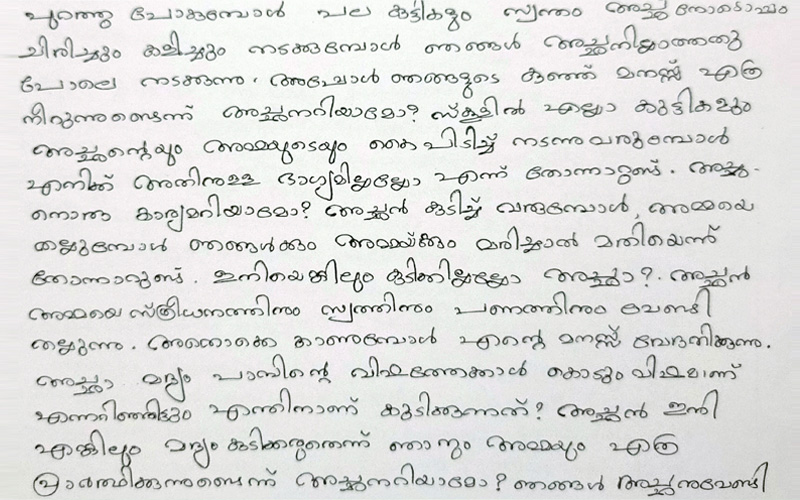 പുറത്തു പോകുമ്പോൾ പല കുട്ടികളും സ്വന്തം അച്ഛനോടൊപ്പം
ചിരിച്ചും കളിച്ചും നടക്കുമ്പോൾ ഞങ്ങൾ അച്ഛനില്ലാത്തതു
പോലെ നടക്കുന്നു. അപ്പോൾ ഞങ്ങളുടെ കുഞ്ഞ് മനസ്സ് എത്ര
നീറുന്നുണ്ടെന്ന് അച്ഛനറിയാമോ? സ്കൂളിൽ എല്ലാ കുട്ടികളും
അച്ഛന്റെയും അമ്മയുടെയും കൈ പിടിച്ച് നടന്നു വരുമ്പോൾ
എനിക്ക് അതിനുള്ള ഭാഗ്യമില്ലല്ലോ എന്ന് തോന്നാറുണ്ട്. അച്ഛ-
നൊരു കാര്യമറിയാമോ? അച്ഛൻ കുടിച്ച് വരുമ്പോൾ, അമ്മയെ
തല്ലുമ്പോൾ ഞങ്ങൾക്കും അമ്മയ്ക്കും മരിച്ചാൽ മതിയെന്ന്
തോന്നാറുണ്ട്. ഇനിയെങ്കിലും കുടിക്കില്ലല്ലോ അച്ഛാ?. അച്ഛൻ
അമ്മയെ സ്ത്രീധനത്തിനും സ്വത്തിനും പണത്തിനും വേണ്ടി
തല്ലുന്നു. അതൊക്കെ കാണുമ്പോൾ എന്റെ മനസ്സ് വേദനിക്കുന്നു.
അച്ഛാ മദ്യം പാമ്പിന്റെ വിഷത്തേക്കാൾ കൊടും വിഷമാണ്
എന്നറിഞ്ഞിട്ടും എന്തിനാണ് കുടിക്കുന്നത്? അച്ഛൻ ഇനി
എങ്കിലും മദ്യം കുടിക്കരുതെന്ന് ഞാനും അമ്മയും എത്ര
പ്രാർത്ഥിക്കുന്നുണ്ടെന്ന് അച്ഛനറിയാമോ? ഞങ്ങൾ അച്ഛനുവേണ്ടി